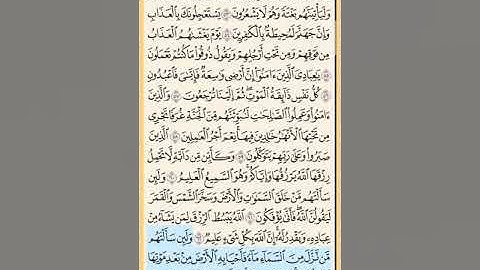 وَلَيَأْتِيَنَّهُم بَغْتَةً وَهُمْ لَا يَشْعُرُونَ ۝ يَسْتَعْجِلُونَكَ بِالْعَذَابِ
وَإِنَّ جَهَنَّمَ لَمُحِيطَةٌ بِالْكَافِرِينَ ۝ يَوْمَ يَغْشَاهُمُ الْعَذَابُ
مِن فَوْقِهِمْ وَمِن تَحْتِ أَرْجُلِهِمْ وَيَقُولُ ذُوقُوا مَا كُنتُمْ تَعْمَلُونَ
۝ يَا عِبَادِيَ الَّذِينَ آمَنُوا إِنَّ أَرْضِي وَاسِعَةٌ فَإِيَّايَ فَاعْبُدُونِ
۝ كُلُّ نَفْسٍ ذَائِقَةُ الْمَوْتِ ثُمَّ إِلَيْنَا تُرْجَعُونَ ۝ وَالَّذِينَ
آمَنُوا وَعَمِلُوا الصَّالِحَاتِ لَنُبَوِّئَنَّهُم مِّنَ الْجَنَّةِ غُرَفًا تَجْرِي
مِن تَحْتِهَا الْأَنْهَارُ خَالِدِينَ فِيهَا نِعْمَ أَجْرُ الْعَامِلِينَ ۝ الَّذِينَ
صَبَرُوا وَعَلَىٰ رَبِّهِمْ يَتَوَكَّلُونَ ۝ وَكَأَيِّن مِّن دَابَّةٍ لَّا تَحْمِلُ
رِزْقَهَا اللَّهُ يَرْزُقُهَا وَإِيَّاكُمْ وَهُوَ السَّمِيعُ الْعَلِيمُ ۝ وَلَئِن
سَأَلْتَهُم مَّنْ خَلَقَ السَّمَاوَاتِ وَالْأَرْضَ وَسَخَّرَ الشَّمْسَ وَالْقَمَرَ
لَيَقُولُنَّ اللَّهُ فَأَنَّىٰ يُؤْفَكُونَ ۝ اللَّهُ يَبْسُطُ الرِّزْقَ لِمَن يَشَاءُ مِنْ
عِبَادِهِ وَيَقْدِرُ لَهُ إِنَّ اللَّهَ بِكُلِّ شَيْءٍ عَلِيمٌ ۝ وَلَئِن سَأَلْتَهُم
مَّن نَّزَّلَ مِنَ السَّمَاءِ مَاءً فَأَحْيَا بِهِ الْأَرْضَ مِن بَعْدِ مَوْتِهَا